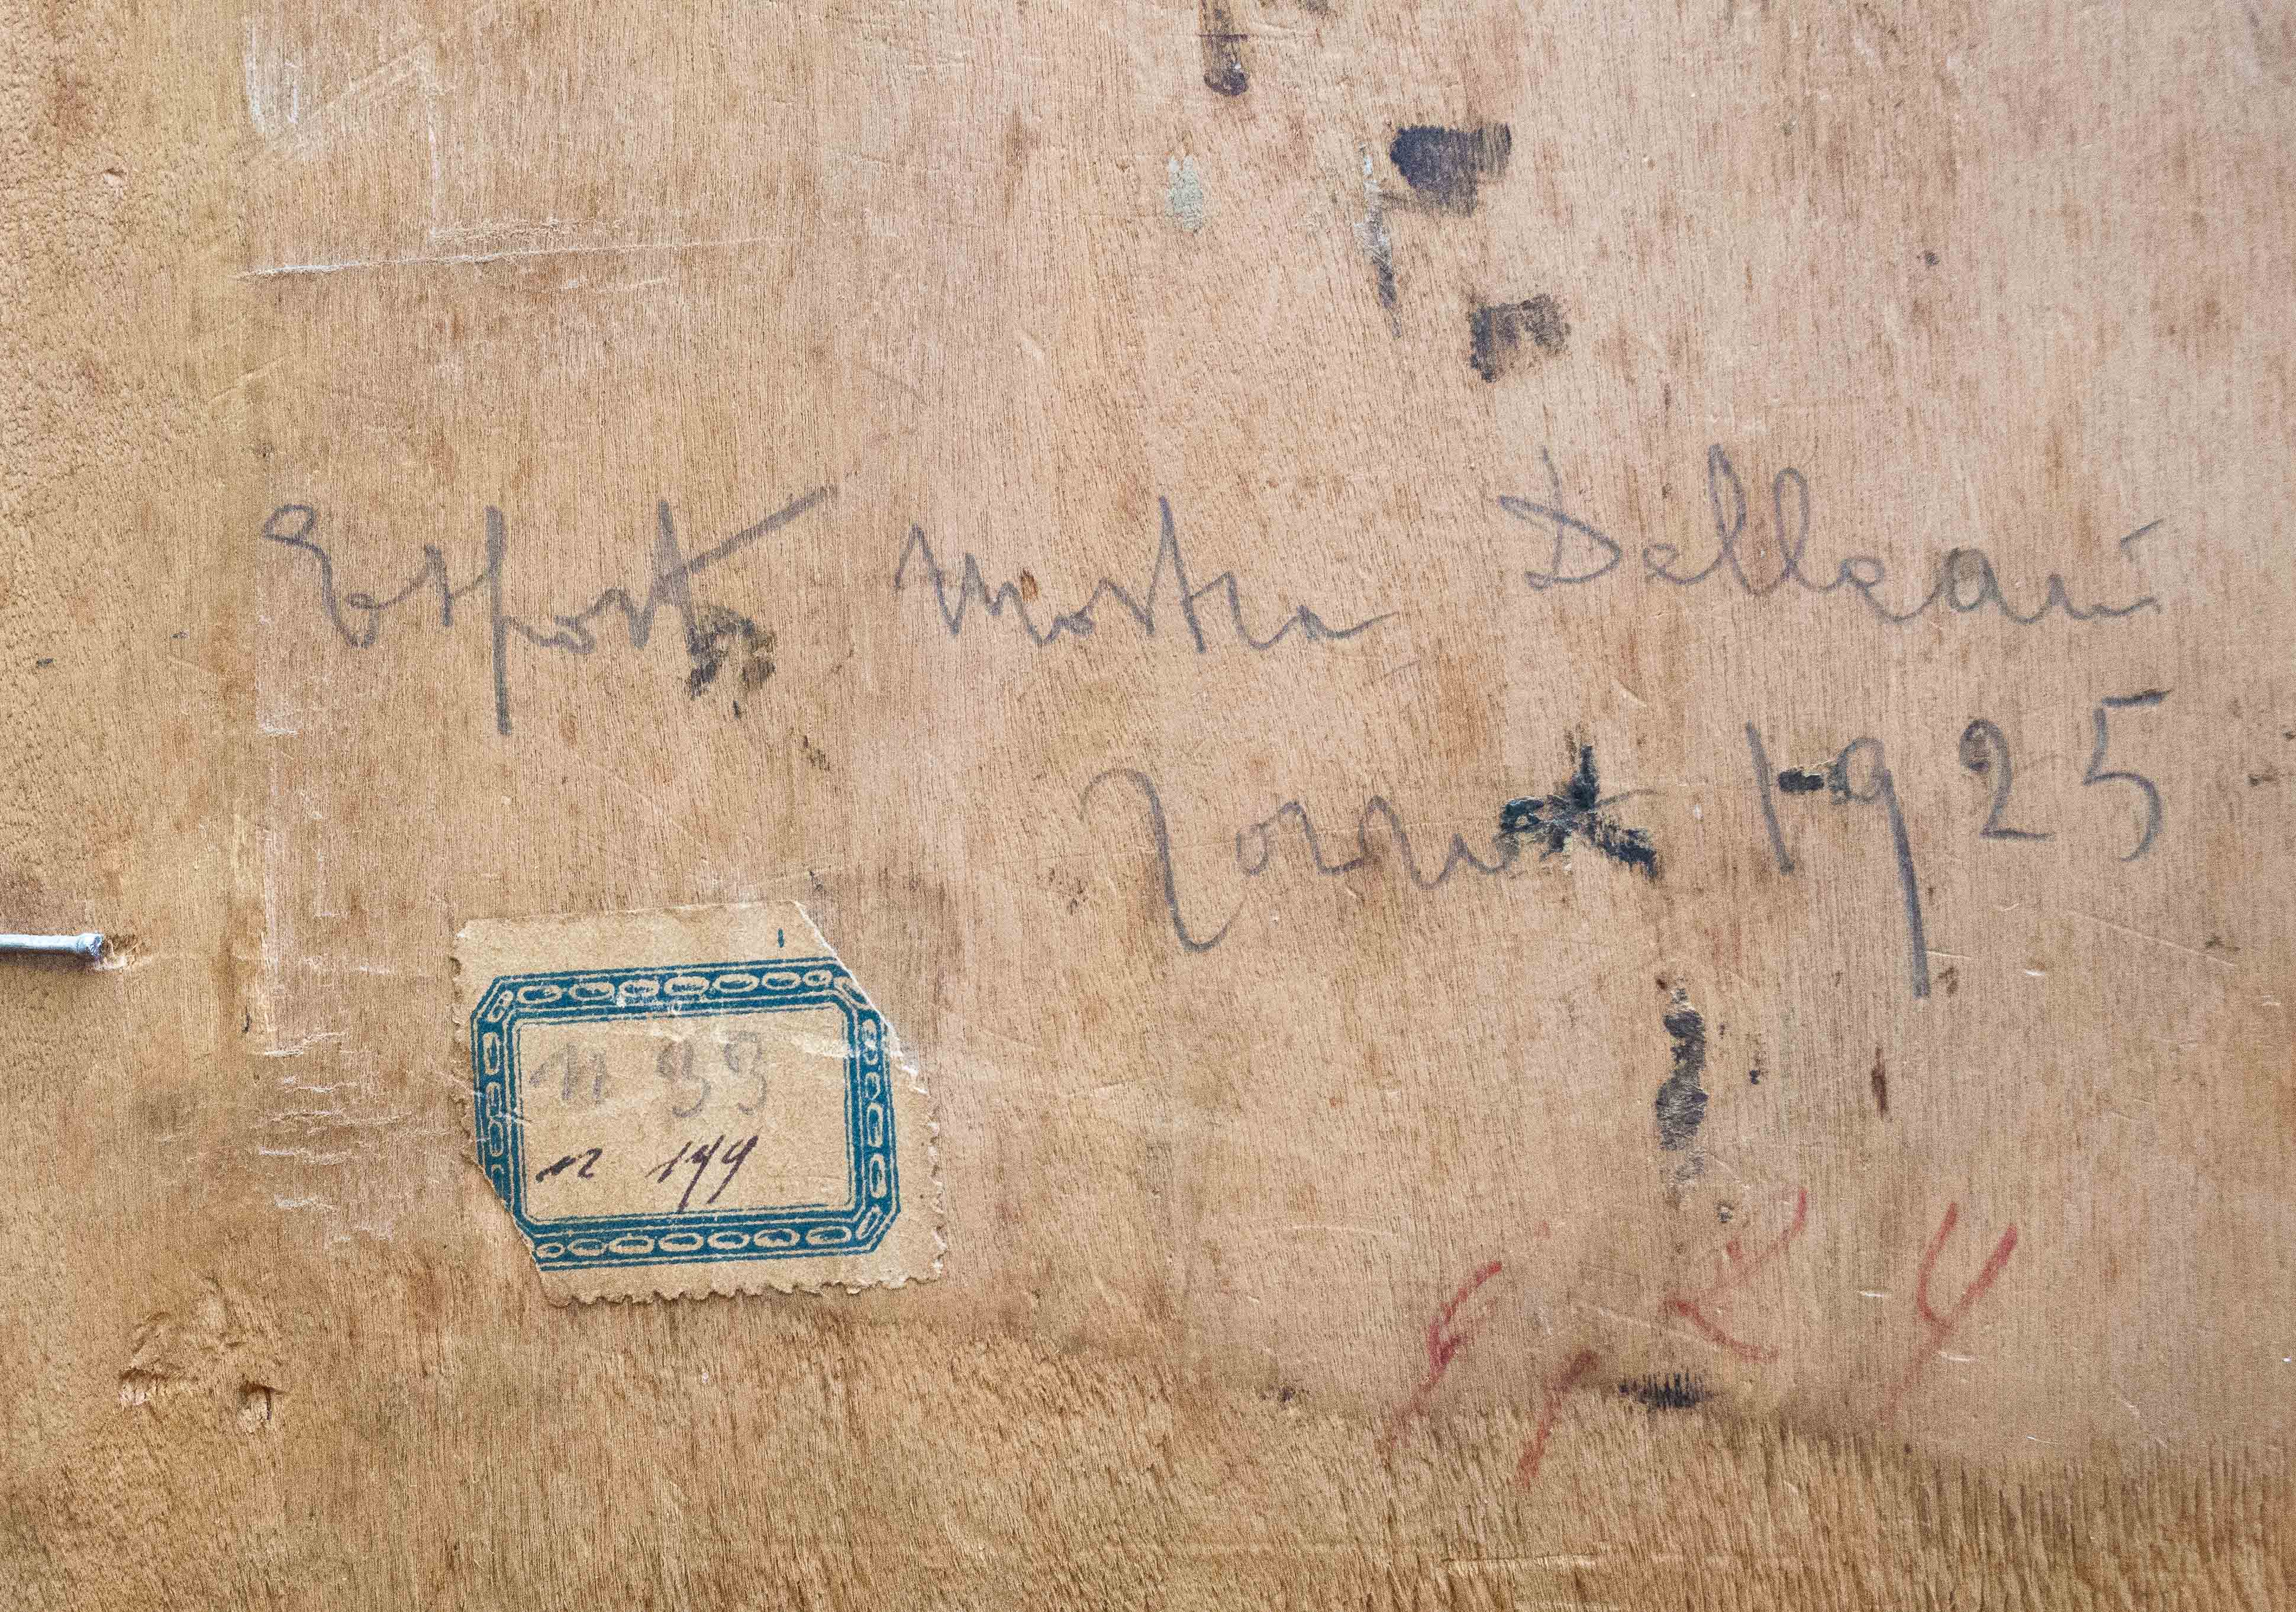 Esposto Mostra Delleani
Torino 1925
n 93
n 199